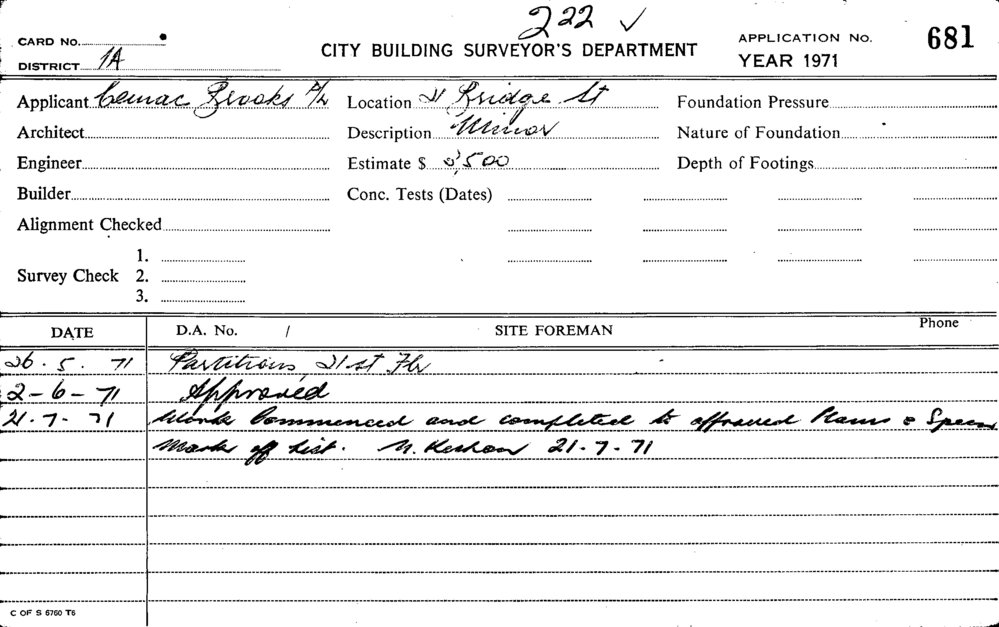 222 ✓
CARD No.
CITY BUILDING SURVEYOR'S DEPARTMENT
APPLICATION No. 681
DISTRICT 1A
YEAR 1971
Applicant Cemac Brooks P/L Location 21 Bridge St Foundation Pressure
Architect Description Minor Nature of Foundation
Engineer Estimate $ 500 Depth of Footings
Builder Conc. Tests (Dates)
Alignment Checked
1.
Survey Check 2.
3.
DATE D.A. No. / SITE FOREMAN Phone
26.5.71 Partitions, 21st Flr
2-6-71 Approved
21.7.71 Work Commenced and completed to approved Plans & Specs
Mark off list. 21.7.71
C OF S 6760 T6